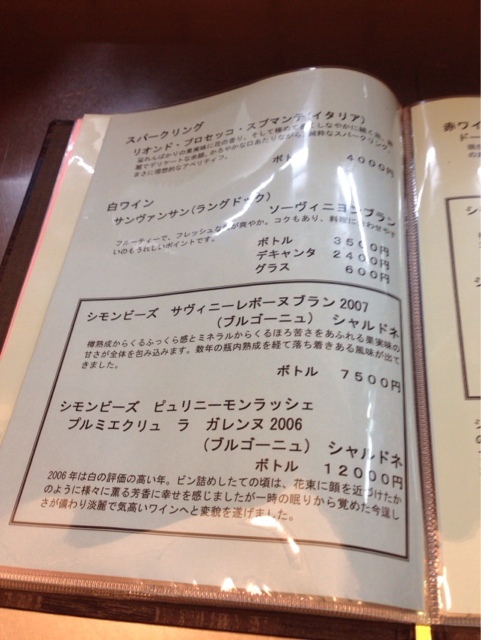 スパークリング
リオンド・プロセッコ・スプマンテ(イタリア)
溢れんばかりの果実味に花の香り。そして極めて
麗でデリケートな余韻。かろやかな口あたりながら
まさに理想的なアペリティフ。
ボトル 4000円
白ワイン
サンヴァンサン(ラングドック) ソーヴィニヨンブラン
フルーティーで、フレッシュな 爽やか。コクもあり、料理に合わせやす
いのもうれしいポイントです。
ボトル 3500円
デキャンタ 2400円
グラス 600円
シモンビーズ サヴィニーレボーヌブラン 2007
(ブルゴーニュ) シャルドネ
樽熟成からくるふっくら感とミネラルからくるほろ苦さをあふれる果実味の
甘さが全体を包み込みます。数年の瓶内熟成を経て落ち着きある風味が出て
きました。
ボトル 7500円
シモンビーズ ピュリニーモンラッシェ
プルミエクリュ ラ ガレンヌ 2006
(ブルゴーニュ) シャルドネ
ボトル 12000円
2006年は白の評価の高い年。ビン詰めしたての頃は、花束に顔を近づけたか
のように様々に薫る芳香に幸せを感じましたが一時の眠りから覚めた今逞し
さが備わり淡麗で気高いワインへと変貌を遂げました。
赤ワ